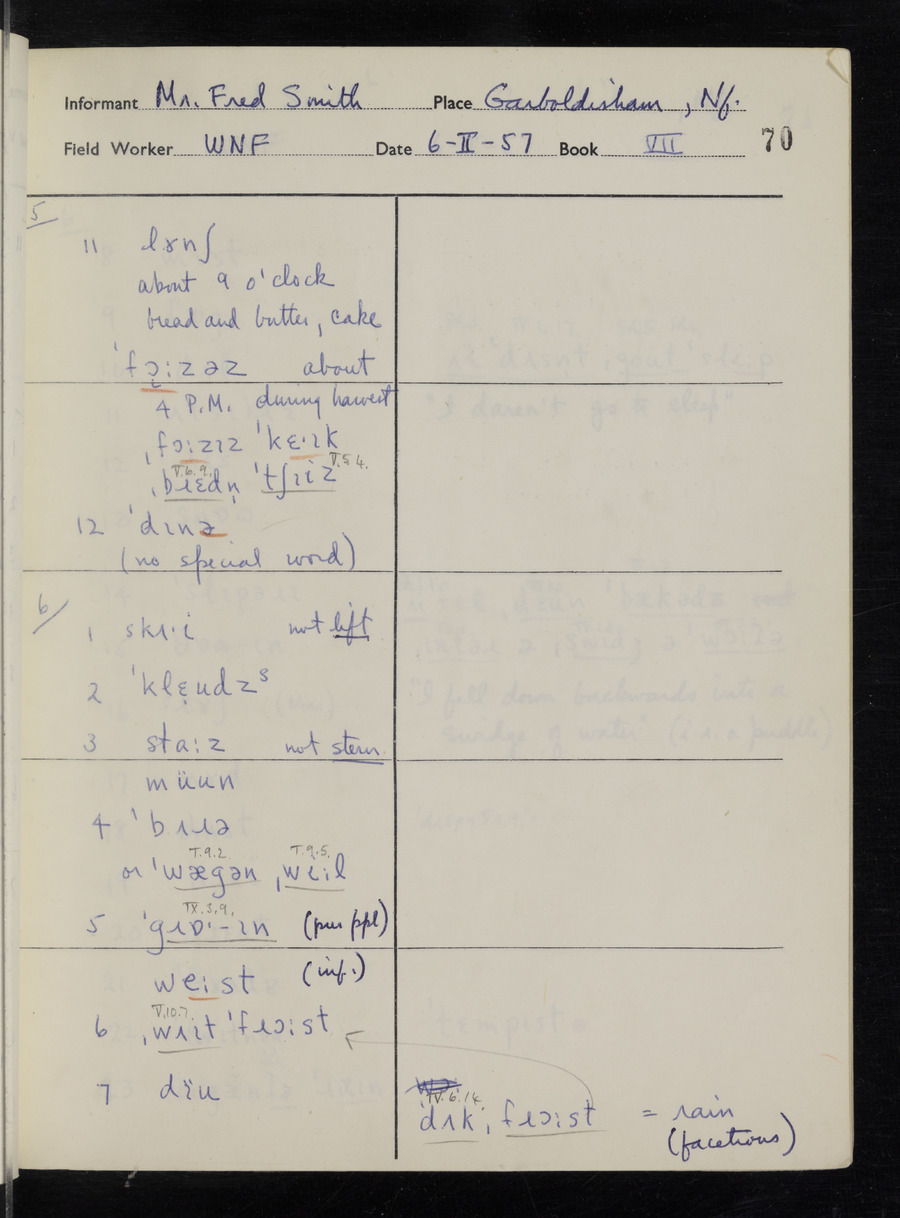 Informant Mr. Fred Smith Place Garboldisham, Nf.
Field Worker WNF Date 6-II-57 Book VII 70
5
11 lɤnʃ
about 9 o'clock
bread and butter, cake
ˈfɔ̣:zəz about
4 P.M. during harvest
ˌfɔ:zɪz ˈkɛ·ɪk
V.6.9. V.5.4.
ˌbɹɛdn̩ ˈtʃɪiz
12 ˈdɪnə
(no special word)
6
1 skɤ·i not lift
2 ˈklɛudzˢ
3 sta:z not stern
müun
4 ˈbɪɪə
I.9.2. I.9.5.
or ˈwægən ˌwɪil
IX.3.9.
5 (pres ppl)
we:st (inf.)
V.10.7.
6 ˌwɪit ˈfɹɔ:st
7 dïu
IV.6.14
dɤk ˌfɹɔ:st = rain
(facetious)